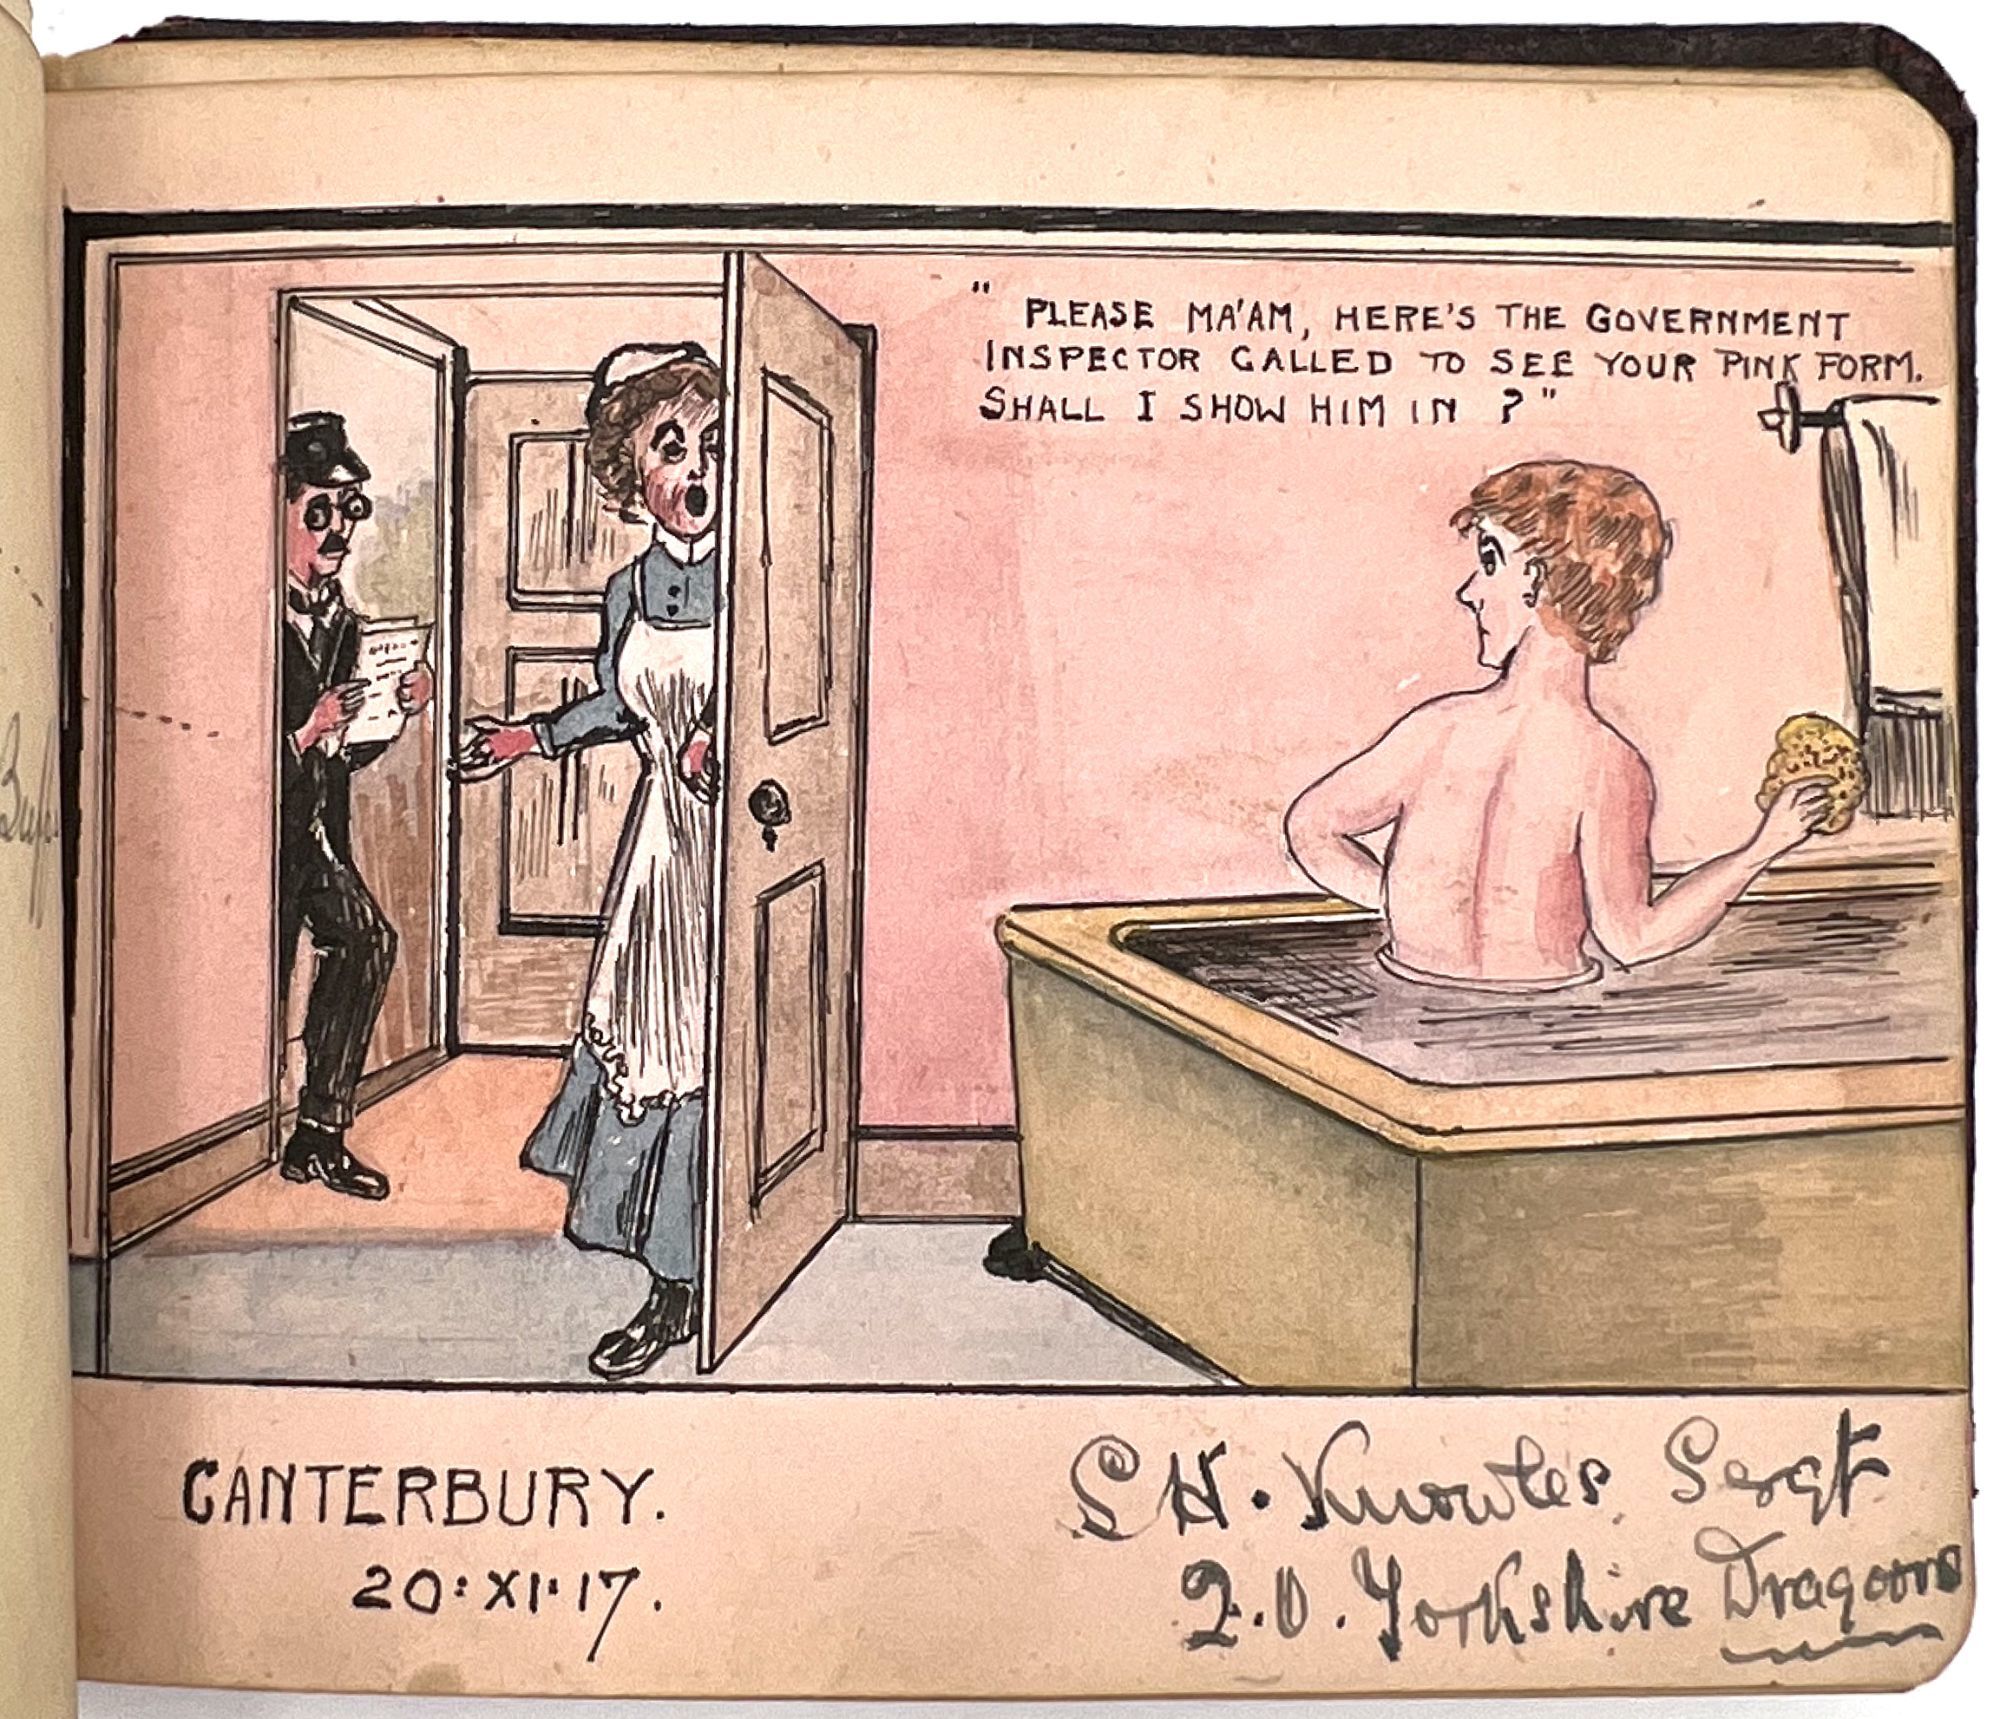 " PLEASE MA'AM, HERE'S THE GOVERNMENT
INSPECTOR CALLED TO SEE YOUR PINK FORM.
SHALL I SHOW HIM IN ? "
CANTERBURY.
20:XI:17.
S H. Knowles. Sergt
Q.O. Yorkshire Dragoons